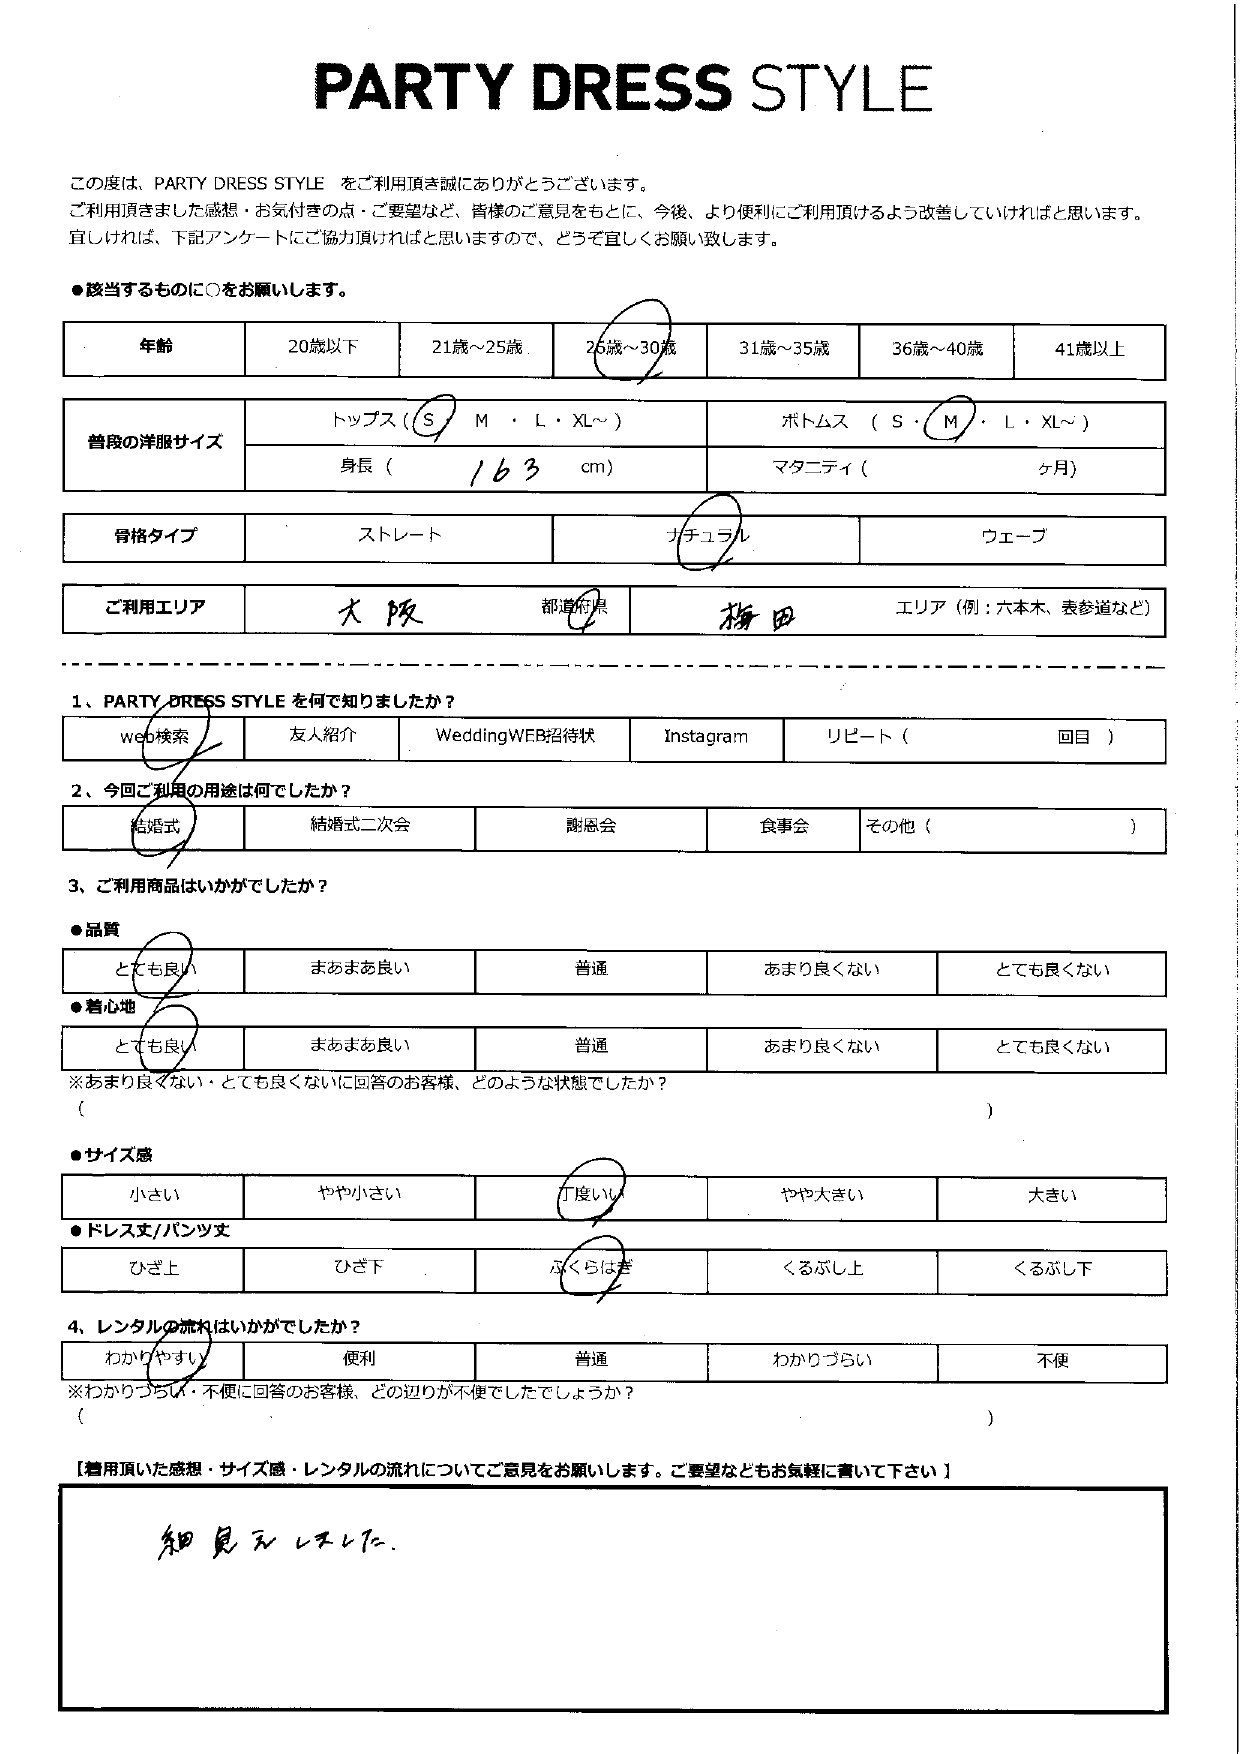 PARTY DRESS STYLE
この度は、PARTY DRESS STYLE　をご利用頂き誠にありがとうございます。
ご利用頂きました感想・お気付きの点・ご要望など、皆様のご意見をもとに、今後、より便利にご利用頂けるよう改善していければと思います。
宜しければ、下記アンケートにご協力頂ければと思いますので、どうぞ宜しくお願い致します。
●該当するものに○をお願いします。
年齢 20歳以下 21歳～25歳 26歳～30歳 31歳～35歳 36歳～40歳 41歳以上
普段の洋服サイズ トップス ( S ・ M ・ L ・ XL～ ) ボトムス ( S ・ M ・ L ・ XL～ )
身長 ( 163 cm) マタニティ ( ヶ月)
骨格タイプ ストレート ナチュラル ウェーブ
ご利用エリア 大阪 都道府県 梅田 エリア（例：六本木、表参道など）
1、PARTY DRESS STYLE を何で知りましたか？
web検索 友人紹介 WeddingWEB招待状 Instagram リピート ( 回目 )
2、今回ご利用の用途は何でしたか？
結婚式 結婚式二次会 謝恩会 食事会 その他 ( )
3、ご利用商品はいかがでしたか？
●品質
とても良い まあまあ良い 普通 あまり良くない とても良くない
●着心地
とても良い まあまあ良い 普通 あまり良くない とても良くない
※あまり良くない・とても良くないに回答のお客様、どのような状態でしたか？
( )
●サイズ感
小さい やや小さい 丁度いい やや大きい 大きい
●ドレス丈/パンツ丈
ひざ上 ひざ下 ふくらはぎ くるぶし上 くるぶし下
4、レンタルの流れはいかがでしたか？
わかりやすい 便利 普通 わかりづらい 不便
※わかりづらい・不便に回答のお客様、どの辺りが不便でしたでしょうか？
( )
【着用頂いた感想・サイズ感・レンタルの流れについてご意見をお願いします。ご要望などもお気軽に書いて下さい 】
細見えしました.